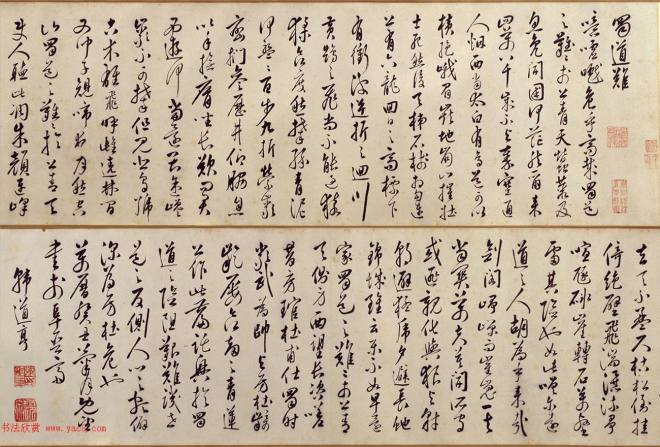 蜀道難
噫吁嚱危乎高哉蜀道
之難難於上青天蠶叢及
魚鳧開國何茫然爾來
四萬八千歲不與秦塞通
人烟西當太白有鳥道可以
橫絶峨眉巔地崩山摧壯
士死然後天梯石棧相鉤連
上有六龍回日之高標下
有衝波逆折之回川
黃鶴之飛尚不能過猿
猱欲度愁攀緣青泥
何盤盤百步九折縈巖
巒捫參歷井仰脅息
以手撫膺坐長歎問君
西遊何當還畏途巉
巖不可攀但見悲鳥號
古木雄飛呼雌繞林間
又聞子規啼夜月愁空
山蜀道之難難於上青天
使人聽此凋朱顏連峰
去天不盈尺枯松倒挂
倚絶壁飛湍瀑流爭
喧豗砯崖轉石萬壑
雷其險也如此嗟爾遠
道之人胡為乎來哉
劍閣崢嶸而崔嵬一夫
當關萬夫莫開所守
或匪親化為狼與豺
朝避猛虎夕避長蛇
錦城雖云樂不如早還
家蜀道之難難於上青
天側身西望長咨嗟
昔房琯杜甫仕蜀時
嚴武為帥與房杜
作此篇託興於蜀
道之險阻艱難
深為房杜危也
萬曆癸丑
韓道亨
书法欣赏